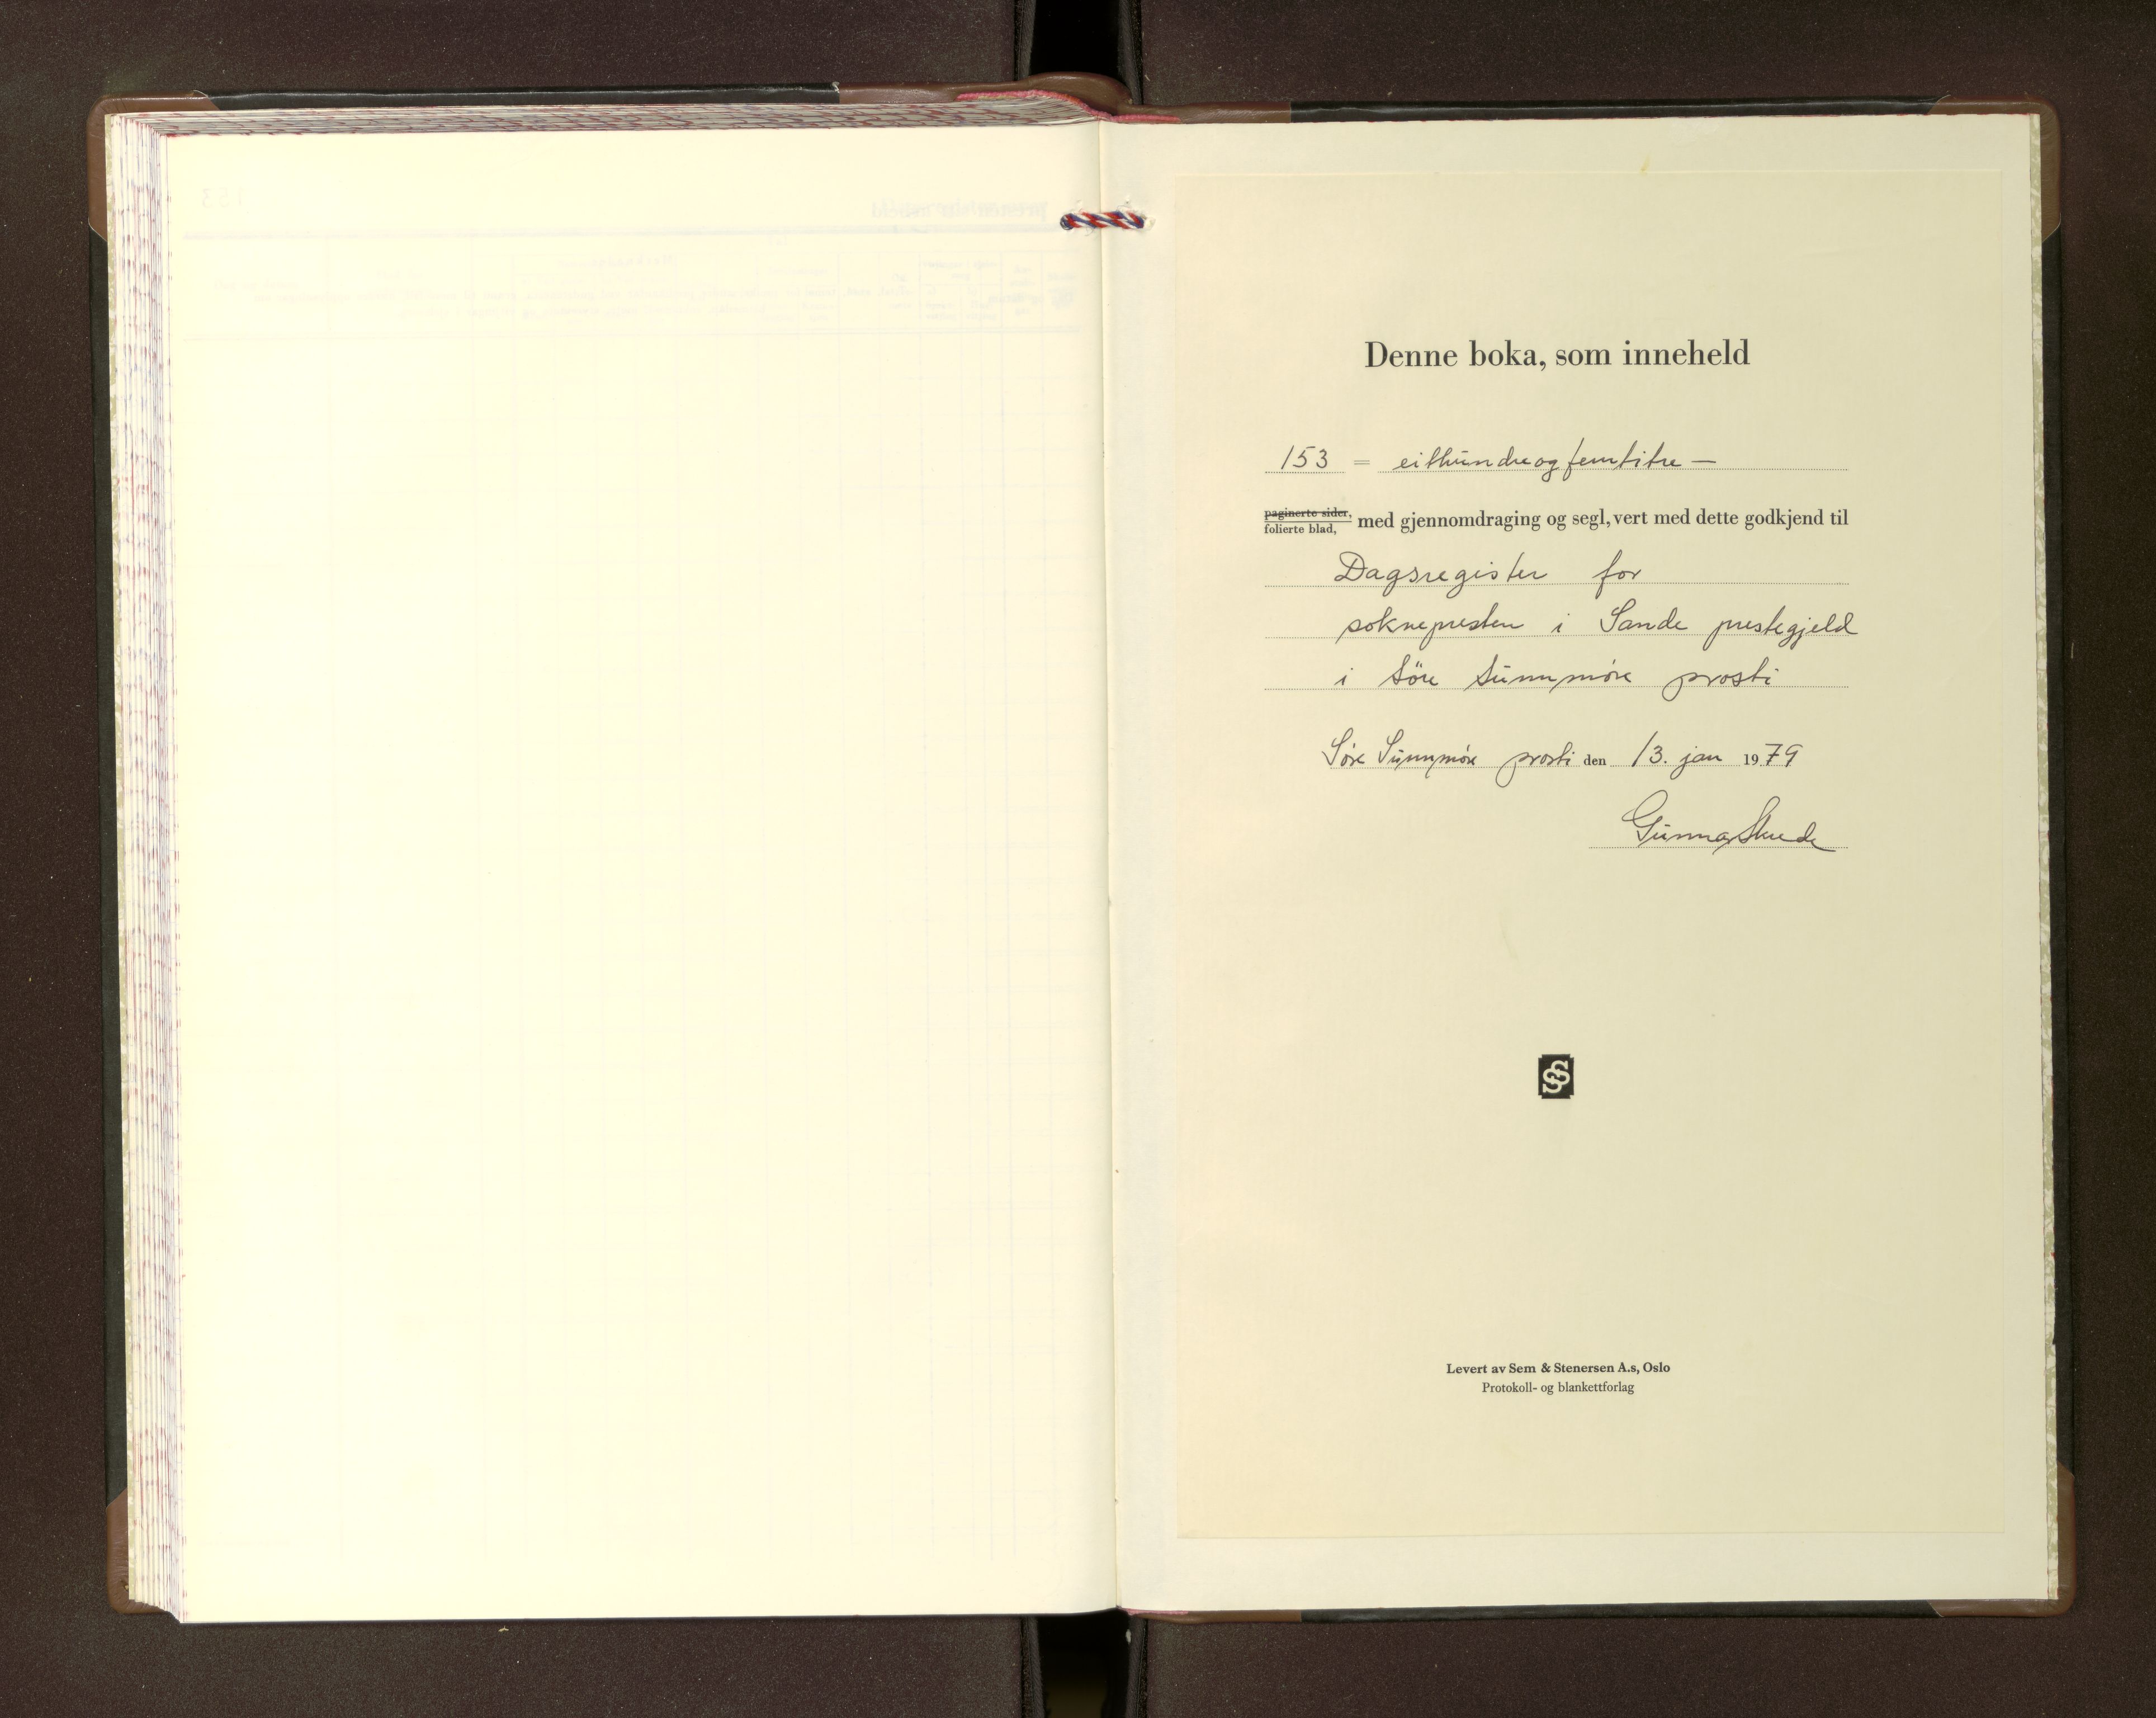 Denne boka, som inneheld
153 = eitthundreogfemtitre —
paginerte sider,
folierte blad, med gjennomdraging og segl, vert med dette godkjend til
Dagsregister for
soknepresten i Sande prestegjeld
i Söre Sunnmöre prosti
Søre Sunnmøre prosti den 13. jan 1979
Gunnar
SS
Levert av Sem & Stenersen A.s, Oslo
Protokoll- og blankettforlag